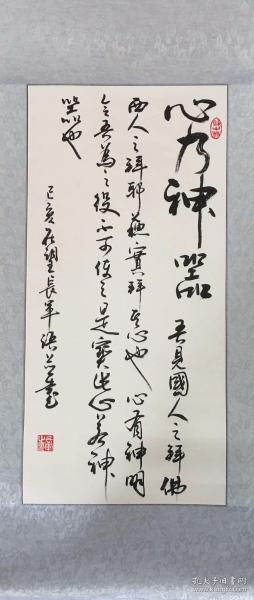 心乃神器 吾見國人之拜佛
西人之拜耶穌實拜其心也心有神明
令吾為之役可使之是實心若神
器也
己亥 長軍
孔夫子旧书网